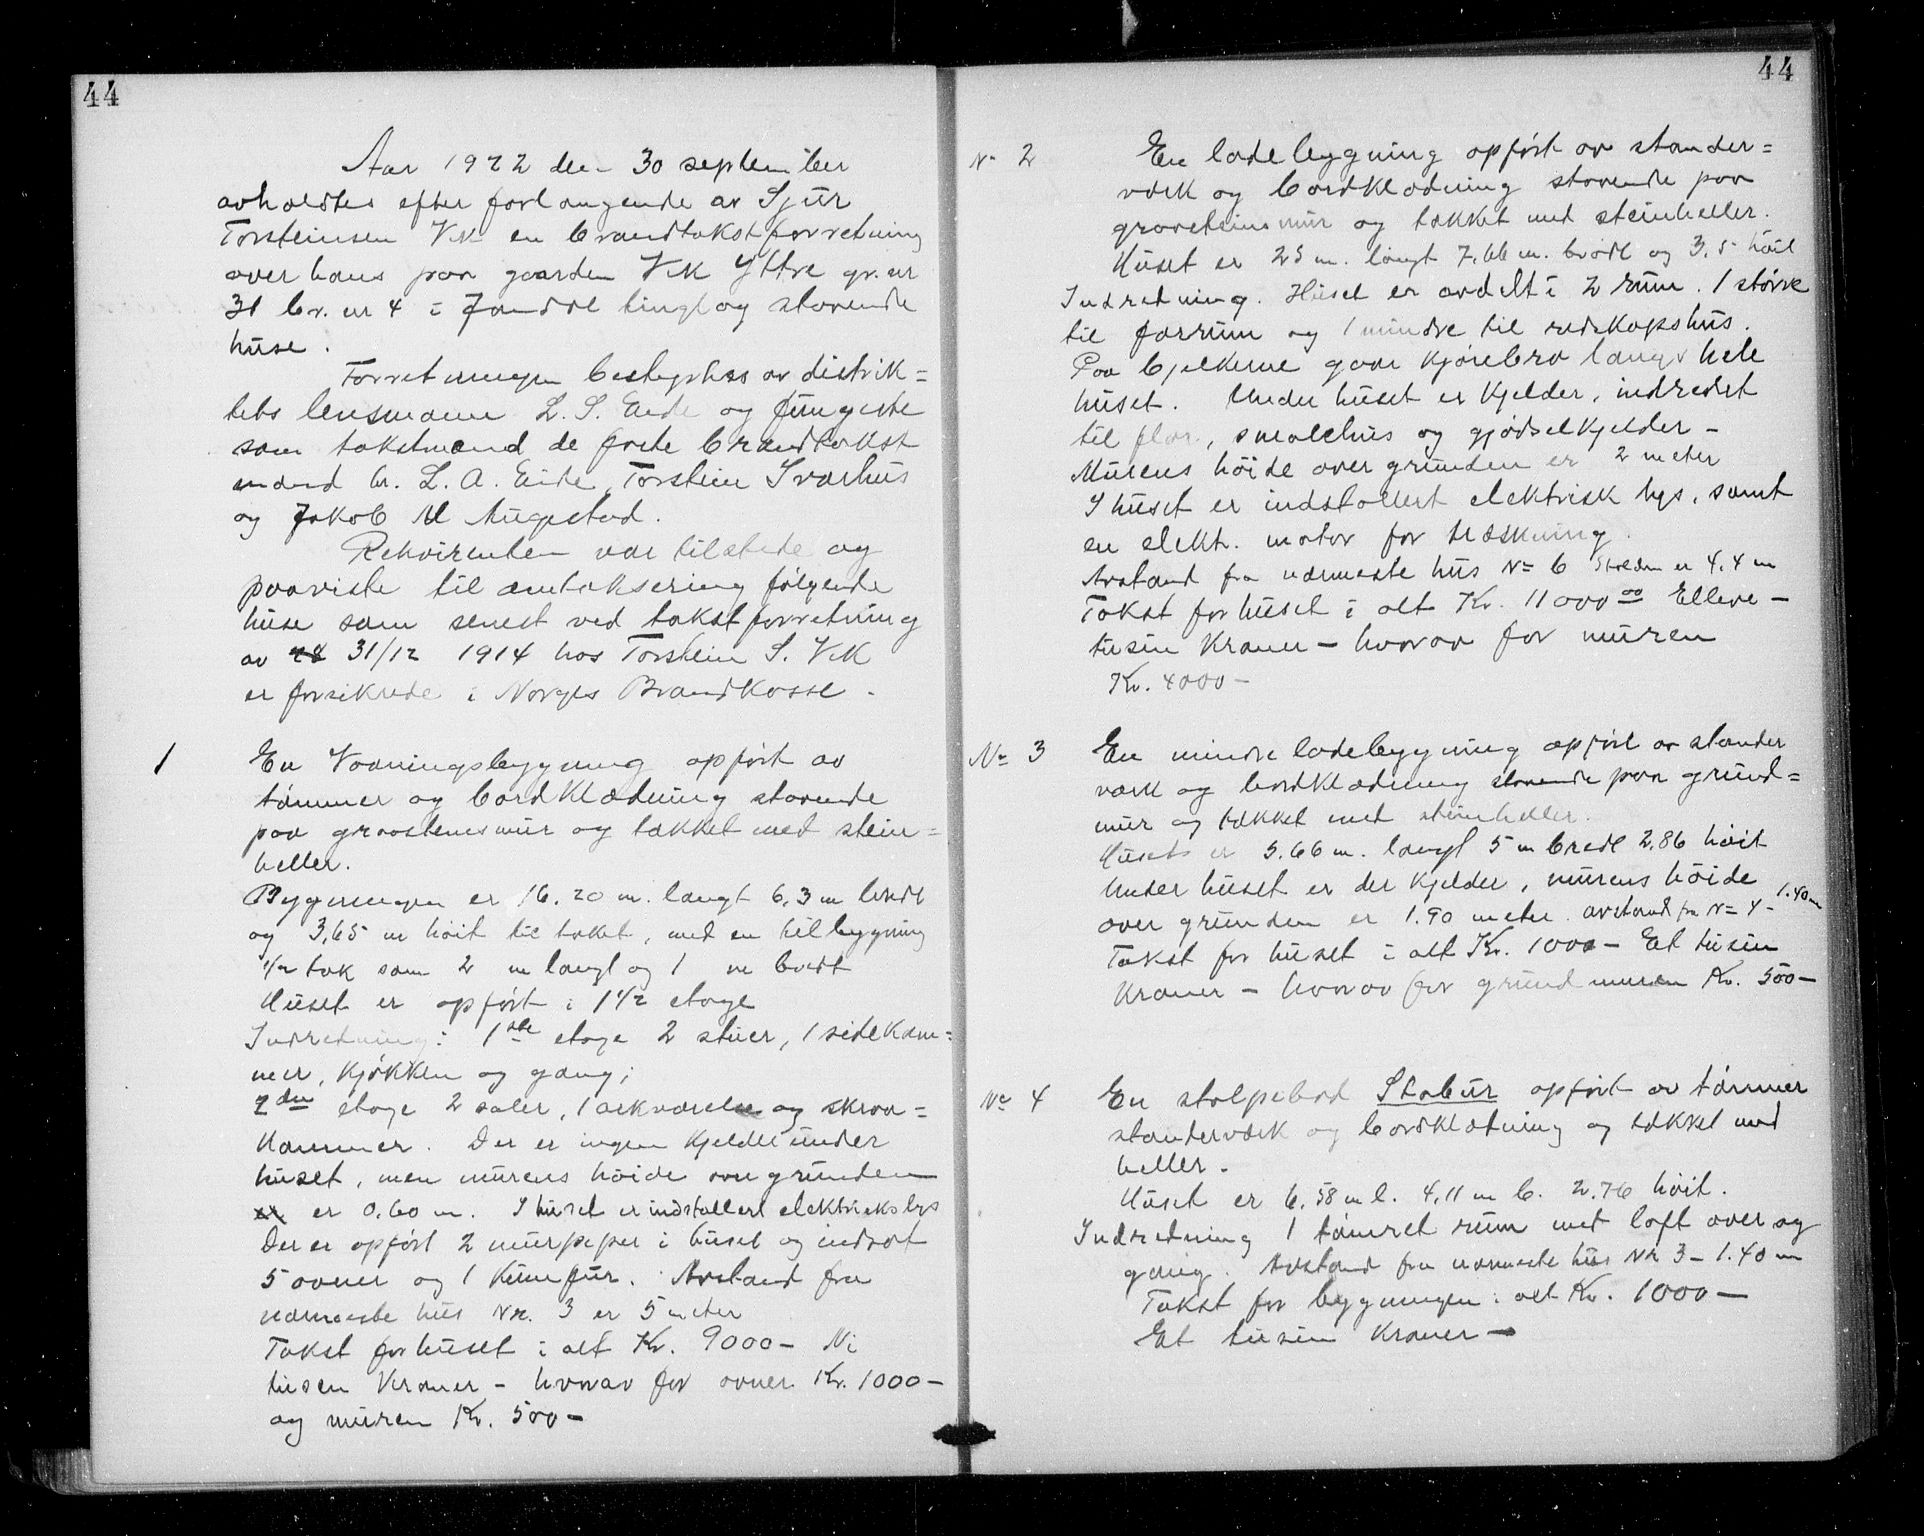 44
Aar 1922 den 30 september
avholdtes efter forlangende av Sjur
Torsteinsen Vik en brandtakstforretning
over hans paa gaarden Vik Yttre gr. nr
31 br. nr 4 i Jondal tinglag staaende
huse.
Forretningen bestyrtes av distrik=
tets lensmann L. S. Eide og fungerte
som takstmænd de faste brandtakst
mænd hr. L. A. Eide, Torstein Svashus
og Jakob M Augestad.
Rekvirenten var tilstede og
paaviste til omtaksering følgende
huse som senest ved takstforretning
av 31/12 1914 hos Torstein S. Vik
er forsikrede i Norges Brandkasse.
1 En Vaaningsbygning opført av
tømmer og bordklædning staaende
paa graastensmur og tækket med stein=
heller.
Bygningen er 16.20 m. langt 6,3 m bredt
og 3,65 m høit til taket, med en tilbygning
1/2 tak som 2 m langt og 1 m bredt
Huset er opført i 1 1/2 etage
Indretning: 1ste etage 2 stuer, 1 sidekam=
mer, kjøkken og gang;
2den etage 2 saler, 1 arkværelse og skraa=
kammer. Der er ingen kjelder under
huset, men murens høide over grunden
er er 0,60 m. I huset er indstallert elektrisks lys
Der er opført 2 murpiper i huset og indsat
5 ovner og 1 komfur. Avstand fra
nærmeste hus Nr. 3 er 5 meter
Takst for huset i alt Kr. 9000 – Ni
tusen Kroner – hvorav for ovner Kr. 1000 –
og muren Kr. 500 –
44
No 2 En ladebygning opført av stander=
værk og bordklædning staaende paa
graasteinsmur og tækket med steinheller.
Huset er 25 m. langt 7,66 m. bredt og 3,5 høit
Indretning. Huset er avdelt i 2 rum. 1 større
til forrum og 1 mindre til redskapshus.
Paa bjelkerne gaar kjørebro langs hele
huset. Under huset er kjelder, indredet
til flor, smalehus og gjødselkjelder –
Murens høide over grunden er 2 meter
I huset er indstallert elektrisk lys, samt
en elekt. motor for træskning.
Avstand fra nærmeste hus No 6 er 4.4 m
Takst for huset i alt Kr. 11000 00 Elleve –
tusin Kroner – hvorav for muren
Kr. 4000 –
No 3 En mindre ladebygning opført av stander
værk og bordklædning staaende paa grund=
mur og tækket med steinheller.
Husets er 5.66 m. langt 5 m bredt 2,86 høit
Under huset er der kjelder, murens høide
over grunden er 1.90 meter. avstand fra No 4 – 1.40 m
Takst for huset i alt Kr. 1000 – Et tusin
Kroner – hvorav for grundmuren Kr. 500 –
No 4 En stolpebod Stabur opført av tømmer
standerværk og bordklædning og tækket med
heller.
Huset er 6,58 m l. 4,11 m b. 2,76 høit.
Indretning 1 tømret rum med loft over og
gang. Avstand fra nærmeste hus Nr 3 – 1.40 m
Takst for bygningen i alt Kr. 1000 –
Et tusin Kroner –